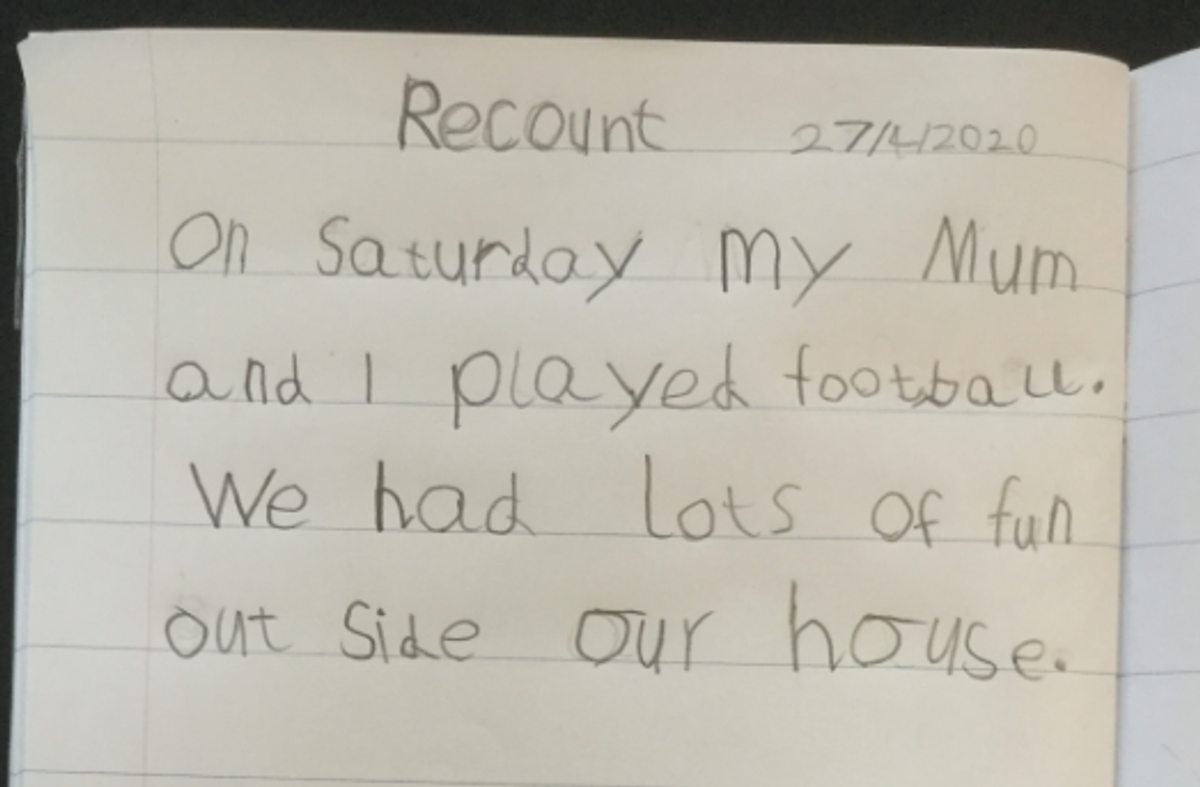 Recount 27/4/2020
On Saturday my Mum
and I played football.
We had lots of fun
out side our house.